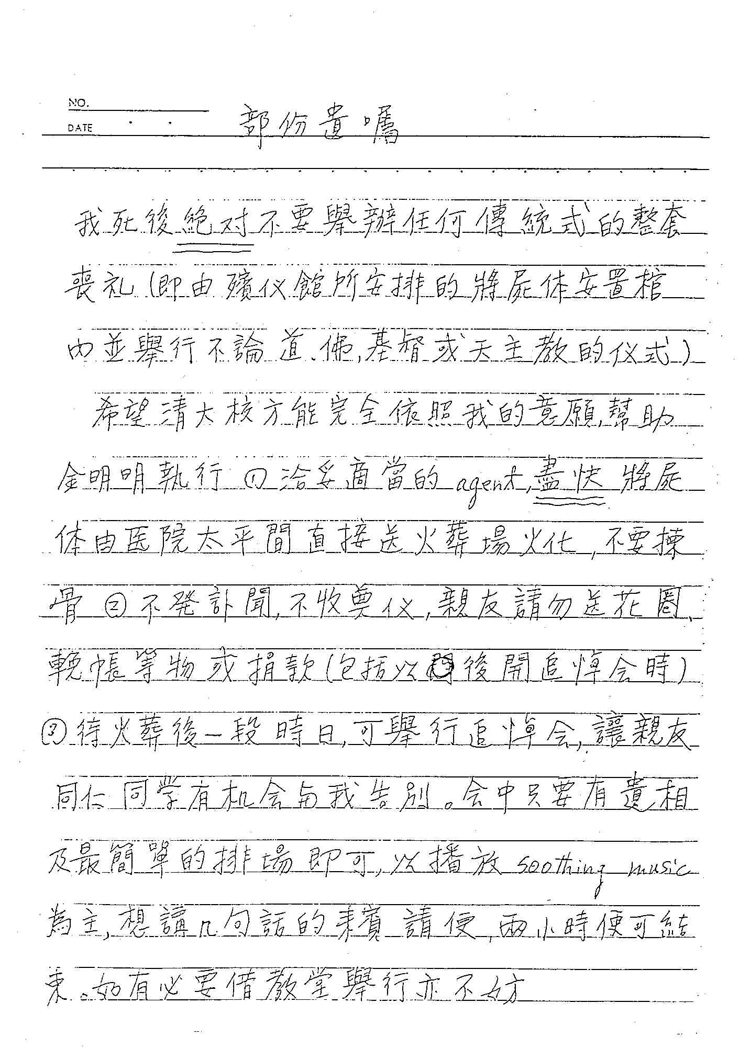 NO.
DATE
部份遺囑
我死後絕对不要舉辦任何傳統式的整套
喪礼(即由殯仪館所安排的將屍体安置棺
內並舉行不論道、佛,基督或天主教的仪式)
希望清大核方能完全依照我的意願,幫助
金明明執行 ① 洽妥適當的 agent,盡快 將屍
体由医院太平間直接送火葬場火化,不要揀
骨 ② 不發訃聞,不收奠仪,親友請勿送花圈、
輓帳等物或捐款(包括以後開追悼会時)
③ 待火葬後一段時日,可舉行追悼会,讓親友
同仁同学有机会与我告別。会中只要有遺相
及最簡單的排場即可,以播放 soothing music
為主,想講几句話的來賓請便,兩小時便可結
束。如有必要借教堂舉行亦不妨